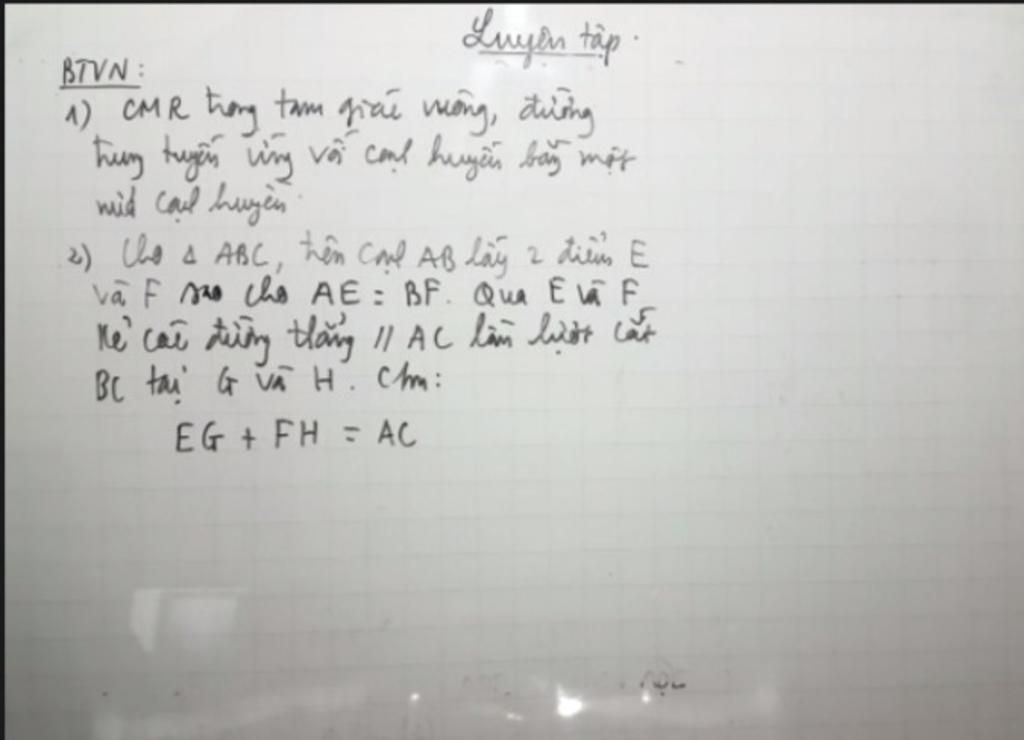 Luyện tập.
BTVN:
1) CMR trong tam giác vuông, đường
trung tuyến ứng với cạnh huyền bằng một
nửa cạnh huyền.
2) Cho Δ ABC, trên cạnh AB lấy 2 điểm E
và F sao cho AE = BF. Qua E và F
Kẻ các đường thẳng // AC lần lượt cắt
BC tại G và H. Chm:
EG + FH = AC